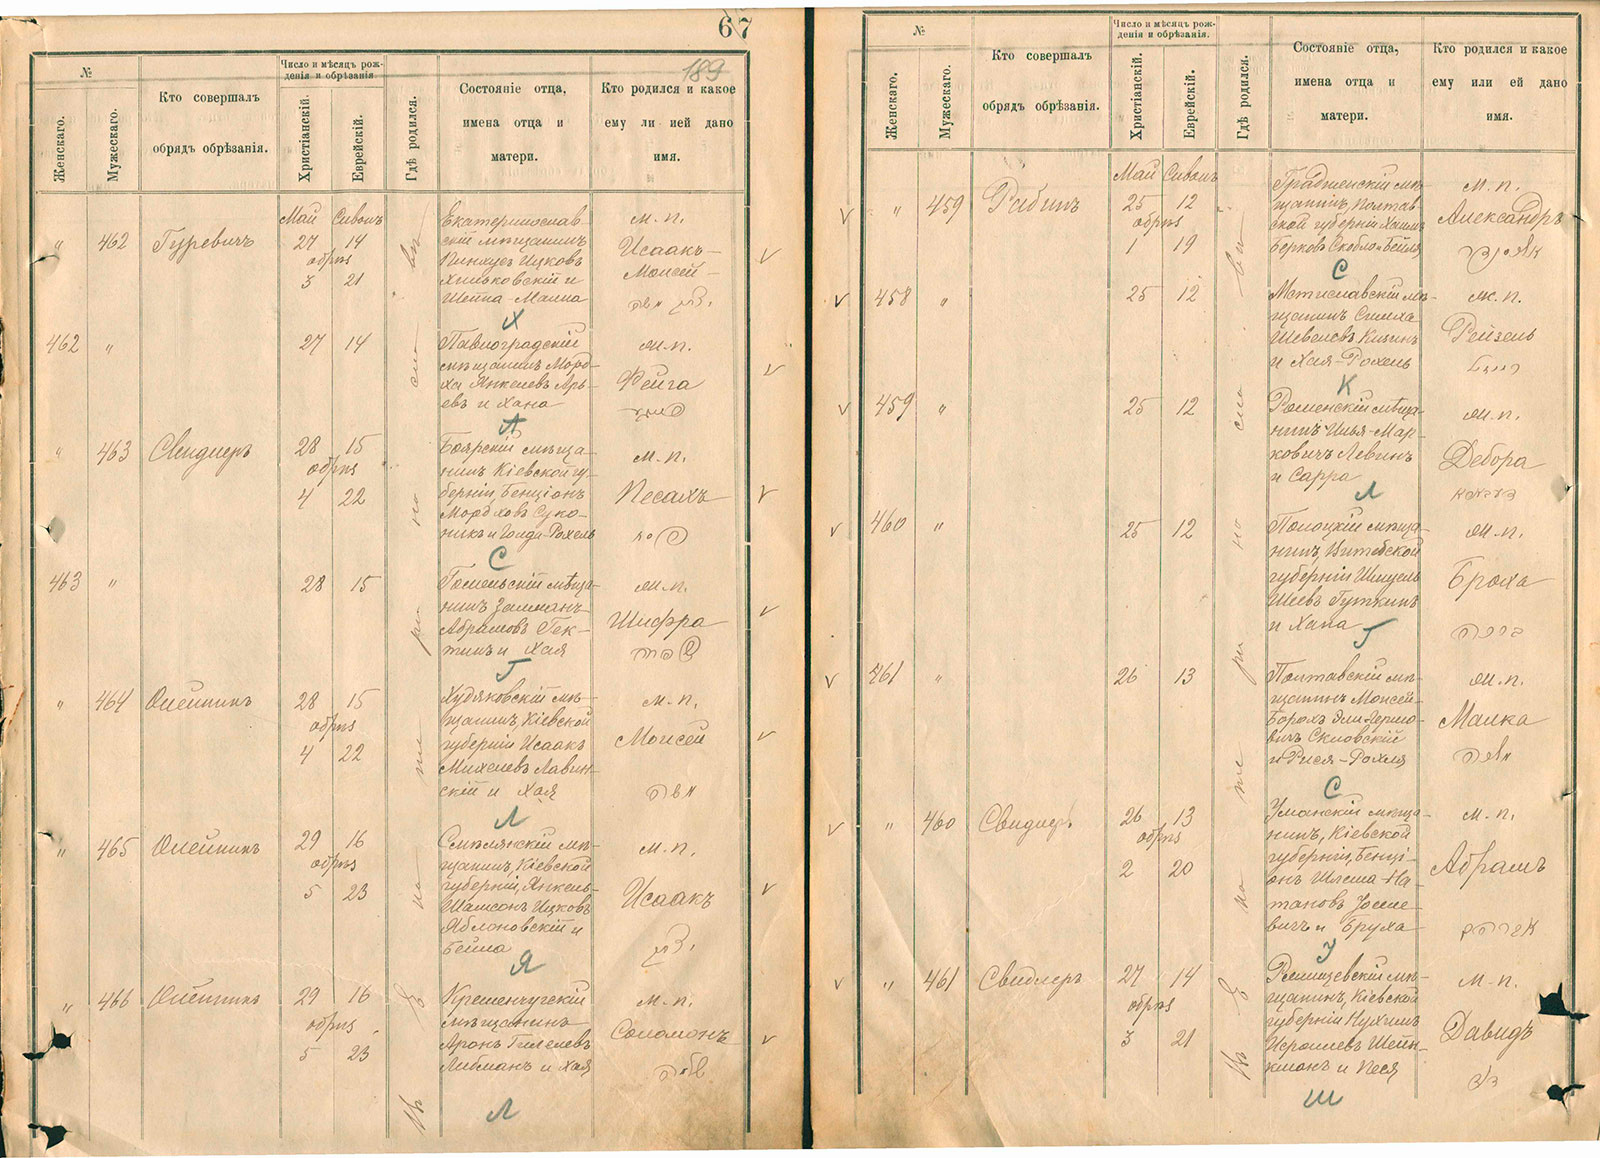 67
189
№
Женскаго.
Мужескаго.
Кто совершалъ
обрядъ обрѣзанія.
Число и мѣсяцъ рож-
денія и обрѣзанія
Христіанскій.
Еврейскій.
Гдѣ родился.
Состояніе отца,
имена отца и
матери.
Кто родился и какое
ему ли ией дано
имя.
Май Сивонъ
„ 462 Гуревичъ
27 14
обрѣз
3 21
Екатеринослав-
скій мѣщанинъ
Пинхусъ Ицковъ
Хиньковскій и
Шейна-Малка
м. п.
Исаакъ-
Моисей-
Х
462 „
27 14
Павлоградскій
мѣщанинъ Морд-
ха Янкелевъ Арь-
евъ и Хана
ж. п.
Фейга
А
„ 463 Свидлеръ
28 15
обрѣз
4 22
Боярскій мѣща-
нинъ Кіевской гу-
берніи, Бенціонъ
Мордховъ Суко-
никъ и Голда-Рохель
м. п.
Песахъ
С
463 „
28 15
Гомельскій мѣща-
нинъ Залманъ
Абрамовъ Гек-
тинъ и Хая
ж. п.
Шифра
Г
„ 464 Олейникъ
28 15
обрѣз
4 22
Худяковскій мѣ-
щанинъ, Кіевской
губерніи Исаакъ
Михелевъ Лавин-
скій и Хая
м. п.
Моисей
Л
„ 465 Олейникъ
29 16
обрѣз
5 23
Смѣлянскій мѣ-
щанинъ, Кіевской
губерніи, Янкель-
Шамсонъ Ицковъ
Яблоновскій и
Бейла
м. п.
Исаакъ
Я
„ 466 Олейникъ
29 16
обрѣз
5 23
Кременчугскій
мѣщанинъ
Аронъ Гилелевъ
Либманъ и Хая
м. п.
Соломонъ
Л
№
Женскаго.
Мужескаго.
Кто совершалъ
обрядъ обрѣзанія.
Число и мѣсяцъ рож-
денія и обрѣзанія.
Христіанскій.
Еврейскій.
Гдѣ родился.
Состояніе отца,
имена отца и
матери.
Кто родился и какое
ему или ей дано
имя.
Май Сивонъ
„ 459 Рабинъ
25 12
обрѣз
1 19
Градижскій мѣ-
щанинъ, Полтав-
ской губерніи Хаимъ
Берковъ Скобло и Бейля
м. п.
Александръ
С
458 „
25 12
Мстиславскій мѣ-
щанинъ Симха
Шевелевъ Кизинъ
и Хая-Рохель
ж. п.
Рейзель
К
459 „
25 12
Роменскій мѣща-
нинъ Илья-Мар-
ковичъ Левинъ
и Сарра
ж. п.
Дебора
Л
460 „
25 12
Полоцкій мѣща-
нинъ, Витебской
губерніи Шмуель
Шеевъ Гуткинъ
и Хана
ж. п.
Броха
ברכה
Г
461 „
26 13
Полтавскій мѣ-
щанинъ Моисей-
Борохъ Эли-Гершо-
вичъ Скловскій
и Рися-Рохля
ж. п.
Малка
С
„ 460 Свидлеръ
26 13
обрѣз
2 20
Уманскій мѣща-
нинъ, Кіевской
губерніи, Бенці-
онъ Шлема-На-
тановъ Уселе-
вичъ и Бруха
м. п.
Абрамъ
אברהם
У
„ 461 Свидлеръ
27 14
обрѣз
3 21
Ржищевскій мѣ-
щанинъ, Кіевской
губерніи Нухимъ
Исроилевъ Шейн-
кманъ и Песя
м. п.
Давидъ
דוד
Ш